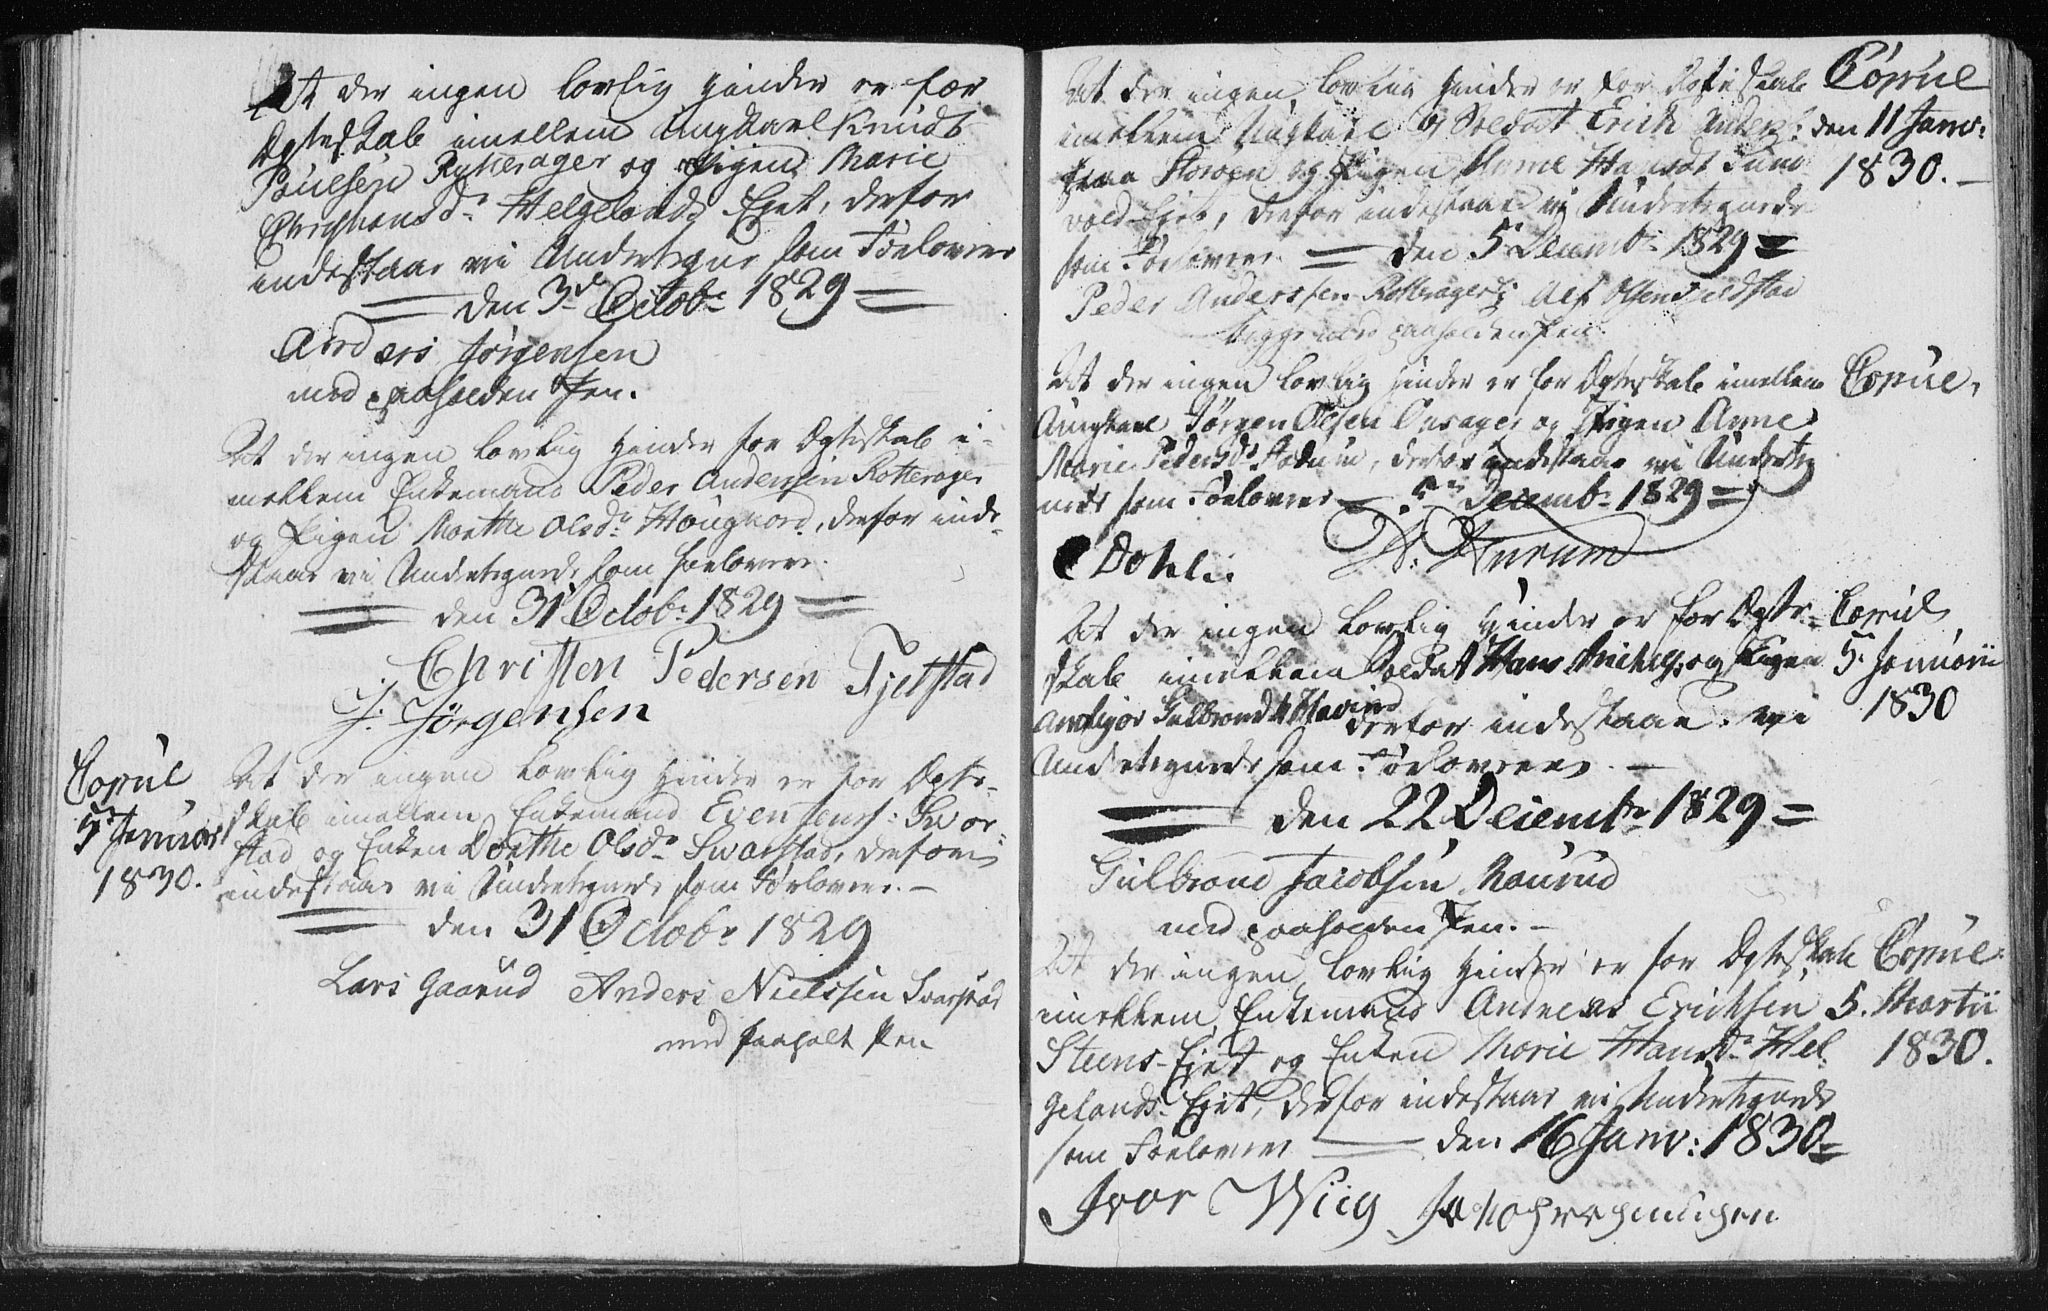 At der ingen lovlig Hinder er for
Ægteskab imellem Ungkarl Knudt
Poulsen Rotterager og Pigen Marie
Christiansd. Helgelands Ejet, derfor
indestaar vi Undertegne som Forlovere
den 3d Octobr 1829
Anders Jørgensen
med paaholden Pen.
At der ingen lovlig Hinder for Ægteskab i-
mellem Enkemand Peder Andersen Rotterager
og Pigen Marthe Olsdr Hougnord, derfor inde-
staar vi Undertegnede som Forlovere.
den 31 Octobr 1829
Christen Pedersen Fjelstad
J. Jørgensen
Copul
5 Januar
1830.
At der ingen lovlig Hinder er for Ægte-
skab imellem Enkemand Even Jens: Svar-
stad og Enken Dorthe Olsdr Svarstad, derfor
indestaar vi Undertegnede som Forlovere.
den 31 Octobr 1829
Lars Gaarud Anders Nielssen Svarstad
med paaholt Pen
At der ingen lovlig Hinder er for Ægteskab
imellem Ungkarl og Soldat Erich Anders:
Storøen og Pigen Anne Hansdt Tan
vold Ejet, derfor indestaar vi Undertegnede
som Forlovere den 5 Decembr 1829
Peder Anderssen Rotterager og Alf Olsen Fieldstad
begge med paaholden Pen
Copul
den 11 Janv:
1830.
At der ingen lovlig Hinder er for Ægteskab imellem
Ungkarl Jørgen Olsen Onsager og Pigen Anne
Marie Pedersdr Hadum, derfor indestaar vi Underteg
nede som Forlovere 5te Decembr 1829
Dohli. Hurum
Copul.
At der ingen lovlig Hinder er for Ægte-
skab imellem Soldat Hans Michels: og Pigen
Ambjør Gulbrand Havind
derfor indestaar vi
Undertegnede som Forlovere.
den 22 Decembr 1829
Gulbrand Jacobsen Maurud
med paaholden Pen.
Copul
5. Januarii
1830
At der ingen lovlig Hinder er for Ægteskab
imellem Enkemand Andreas Erichsen
Steens-Ejet og Enken Marie Hansdr Hel
gelands-Ejet, derfor indestaar vi Undertegnede
som Forlovere den 16 Janv: 1830
Ivor Wiig
Copul.
5. Martii
1830.